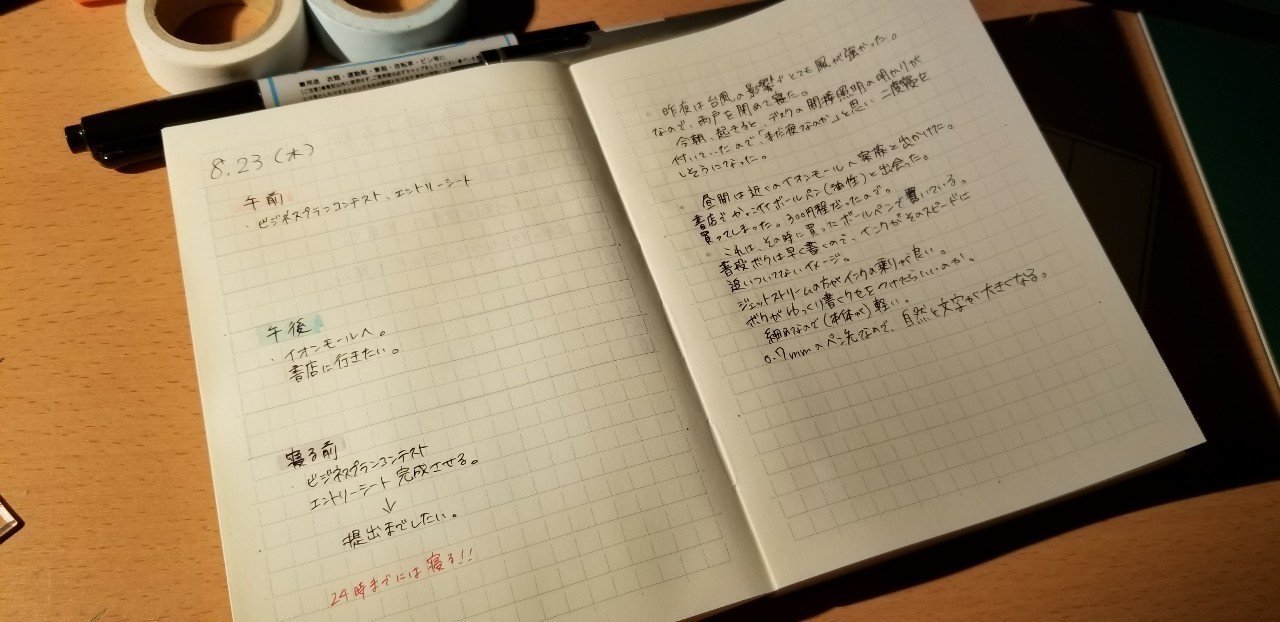 ●用途 衣類・運動靴・華箱・自転車・ビン等に
8.23(木)
午前
・ビジネスプランコンテスト、エントリーシート
午後
・イオンモールへ。
書店に行きたい。
寝る前
・ビジネスプランコンテスト
エントリーシート 完成させる。
↓
提出までしたい。
24時までには寝る!!
・昨夜は台風の影響でとても風が強かった。
なので、雨戸を閉めて寝た。
今朝、起きると、デスクの間接照明の明かりが
付いていたので、「まだ夜なのか」と思い 二度寝を
しそうになった。
・昼間は近くのイオンモールへ家族と出かけた。
書店でかっこいいボールペン(油性)と出会った。
買ってしまった。300円程だったので。
・これは、その時に買ったボールペンで書いている。
普段ボクは早く書くので、インクがそのスピードに
追いついてないイメージ。
ジェットストリームの方がインクの乗りが良い。
ボクがゆっくり書くクセをつけたらいいのか。
細身なので(本体が)軽い。
0.7mmのペン先なので、自然と文字が大きくなる。